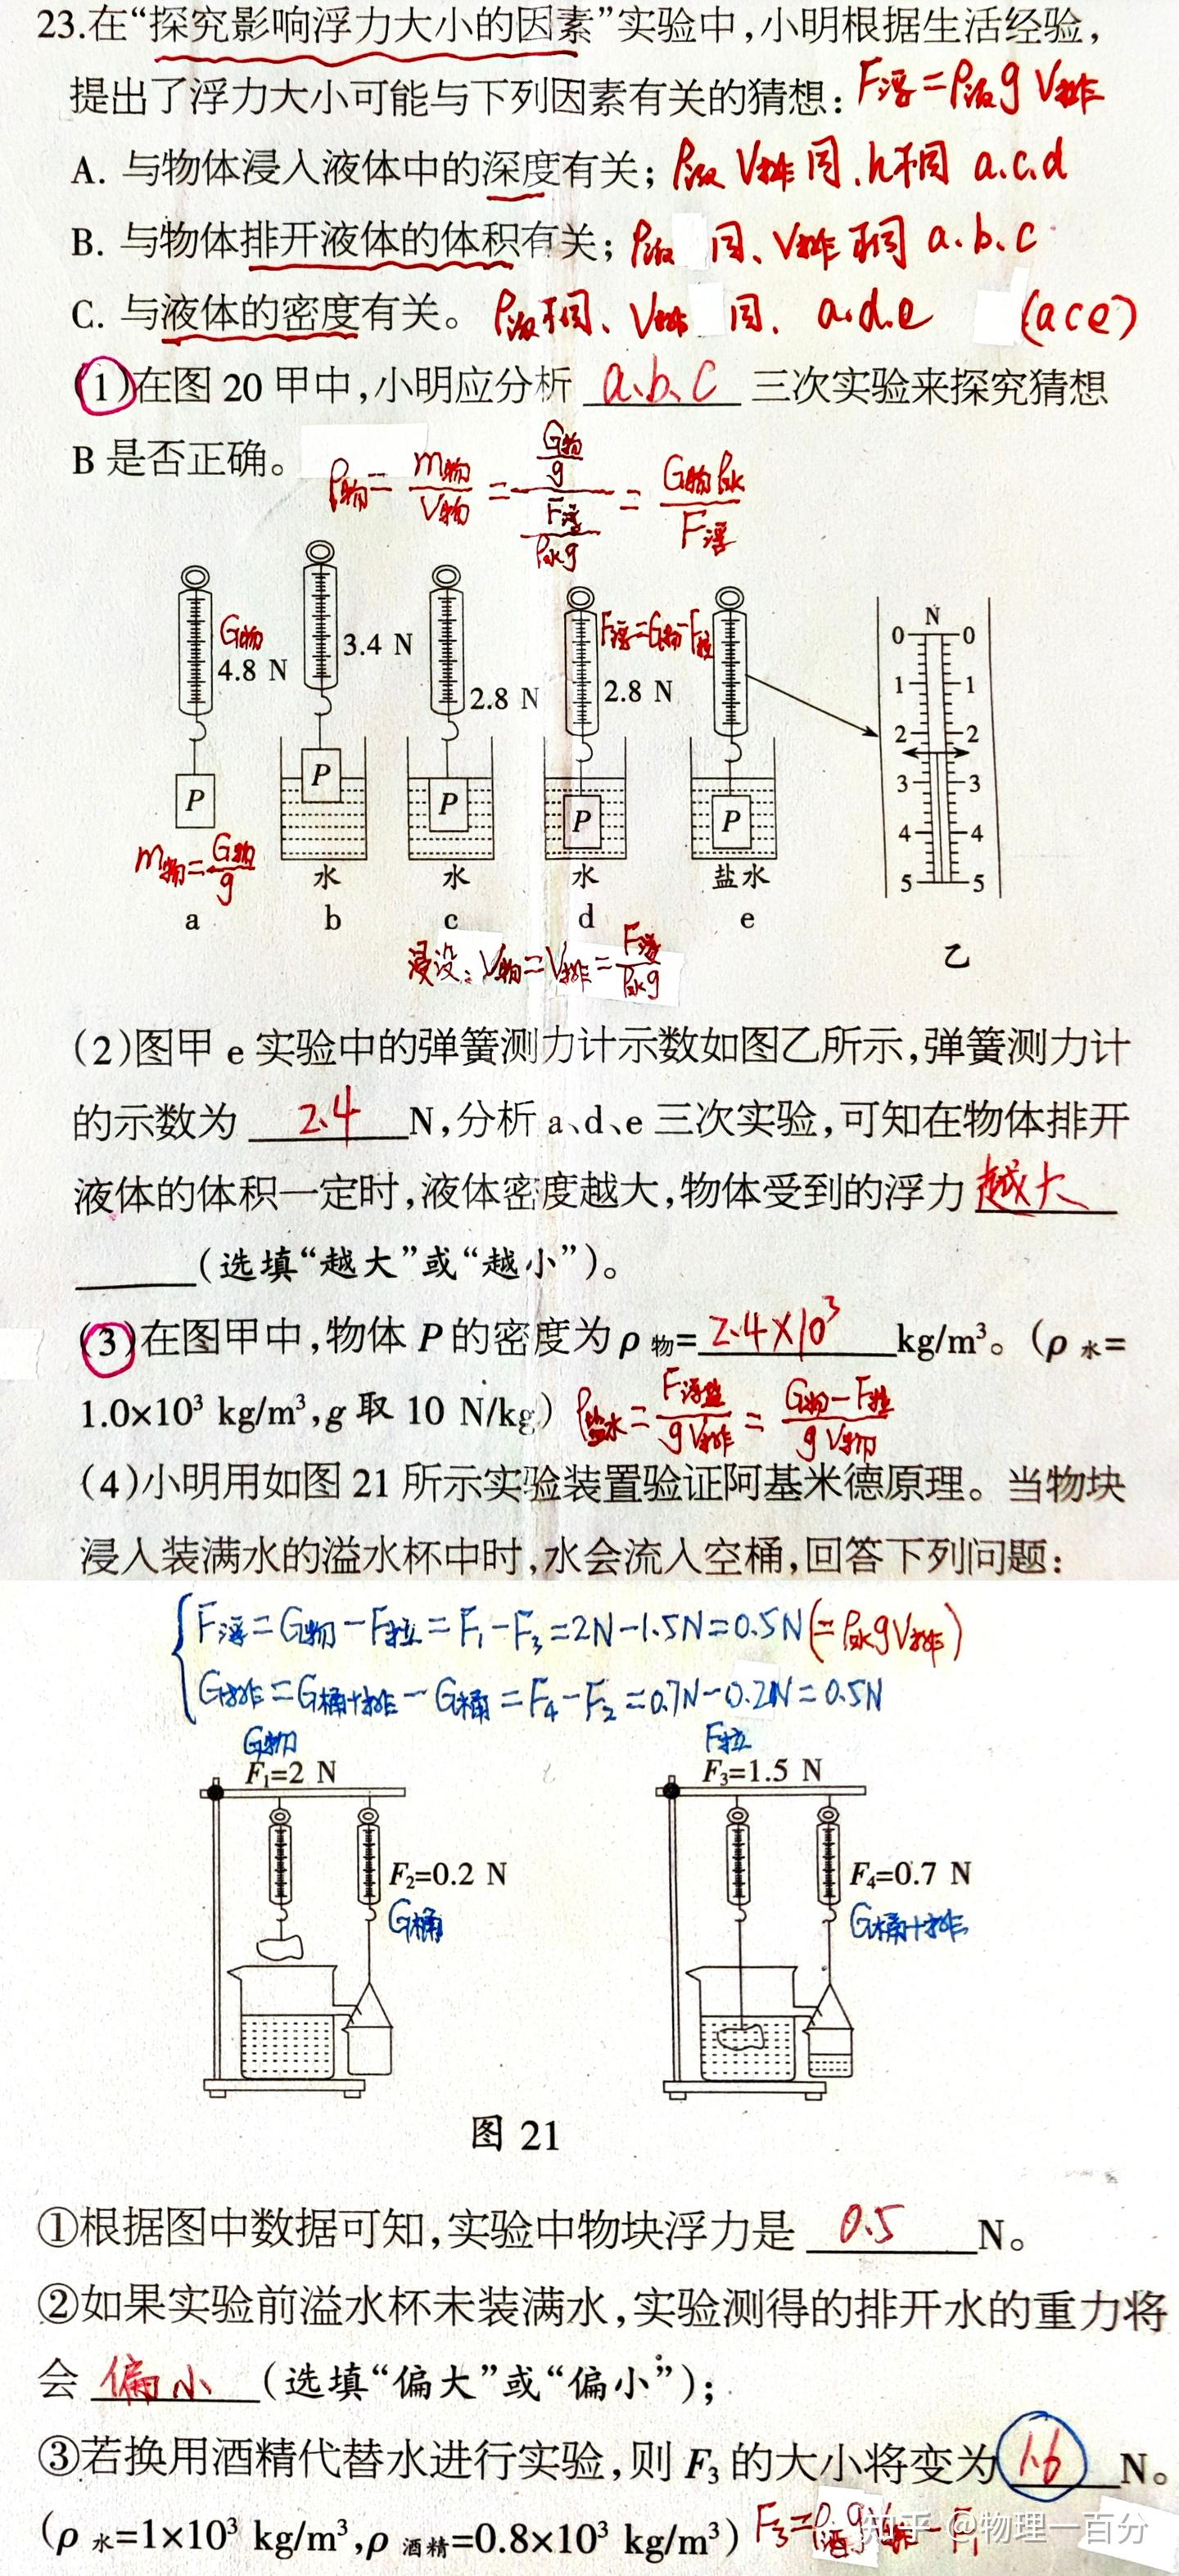 23.在“探究影响浮力大小的因素”实验中,小明根据生活经验,
提出了浮力大小可能与下列因素有关的猜想: F浮=ρ液gV排
A. 与物体浸入液体中的深度有关; ρ液 V排同、h不同 a.c.d
B. 与物体排开液体的体积有关; ρ液 同、V排不同 a、b、c
C. 与液体的密度有关。 ρ液不同、V排 同. a.d.e (ace)
(1)在图 20 甲中,小明应分析 a、b、c 三次实验来探究猜想
B 是否正确。
ρ物=m物/V物=(G物/g)/(F浮/ρ水g)=G物ρ水/F浮
G物
4.8 N
3.4 N
2.8 N
F浮=G物-F拉
2.8 N
P
P
P
P
P
m物=G物/g
水
水
水
盐水
a
b
c
d
e
N
0 0
1 1
2 2
3 3
4 4
5 5
乙
浸没: V物=V排=F浮/ρ水g
(2)图甲 e 实验中的弹簧测力计示数如图乙所示,弹簧测力计
的示数为 2.4 N,分析 a、d、e 三次实验,可知在物体排开
液体的体积一定时,液体密度越大,物体受到的浮力 越大
(选填“越大”或“越小”)。
(3)在图甲中,物体 P 的密度为 ρ物= 2.4×10³ kg/m³。(ρ水=
1.0×10³ kg/m³,g 取 10 N/kg) ρ盐水=F浮盐/gV排=G物-F拉/gV物
(4)小明用如图 21 所示实验装置验证阿基米德原理。当物块
浸入装满水的溢水杯中时,水会流入空桶,回答下列问题:
F浮=G物-F拉=F₁-F₃=2N-1.5N=0.5N(=ρ水gV排)
G排=G桶+排-G桶=F₄-F₂=0.7N-0.2N=0.5N
G物
F₁=2 N
F拉
F₃=1.5 N
F₂=0.2 N
G桶
F₄=0.7 N
G桶+排
图 21
①根据图中数据可知,实验中物块浮力是 0.5 N。
②如果实验前溢水杯未装满水,实验测得的排开水的重力将
会 偏小 (选填“偏大”或“偏小”);
③若换用酒精代替水进行实验,则 F₃ 的大小将变为 1.6 N。
(ρ水=1×10³ kg/m³,ρ酒精=0.8×10³ kg/m³)
知乎 @物理一百分